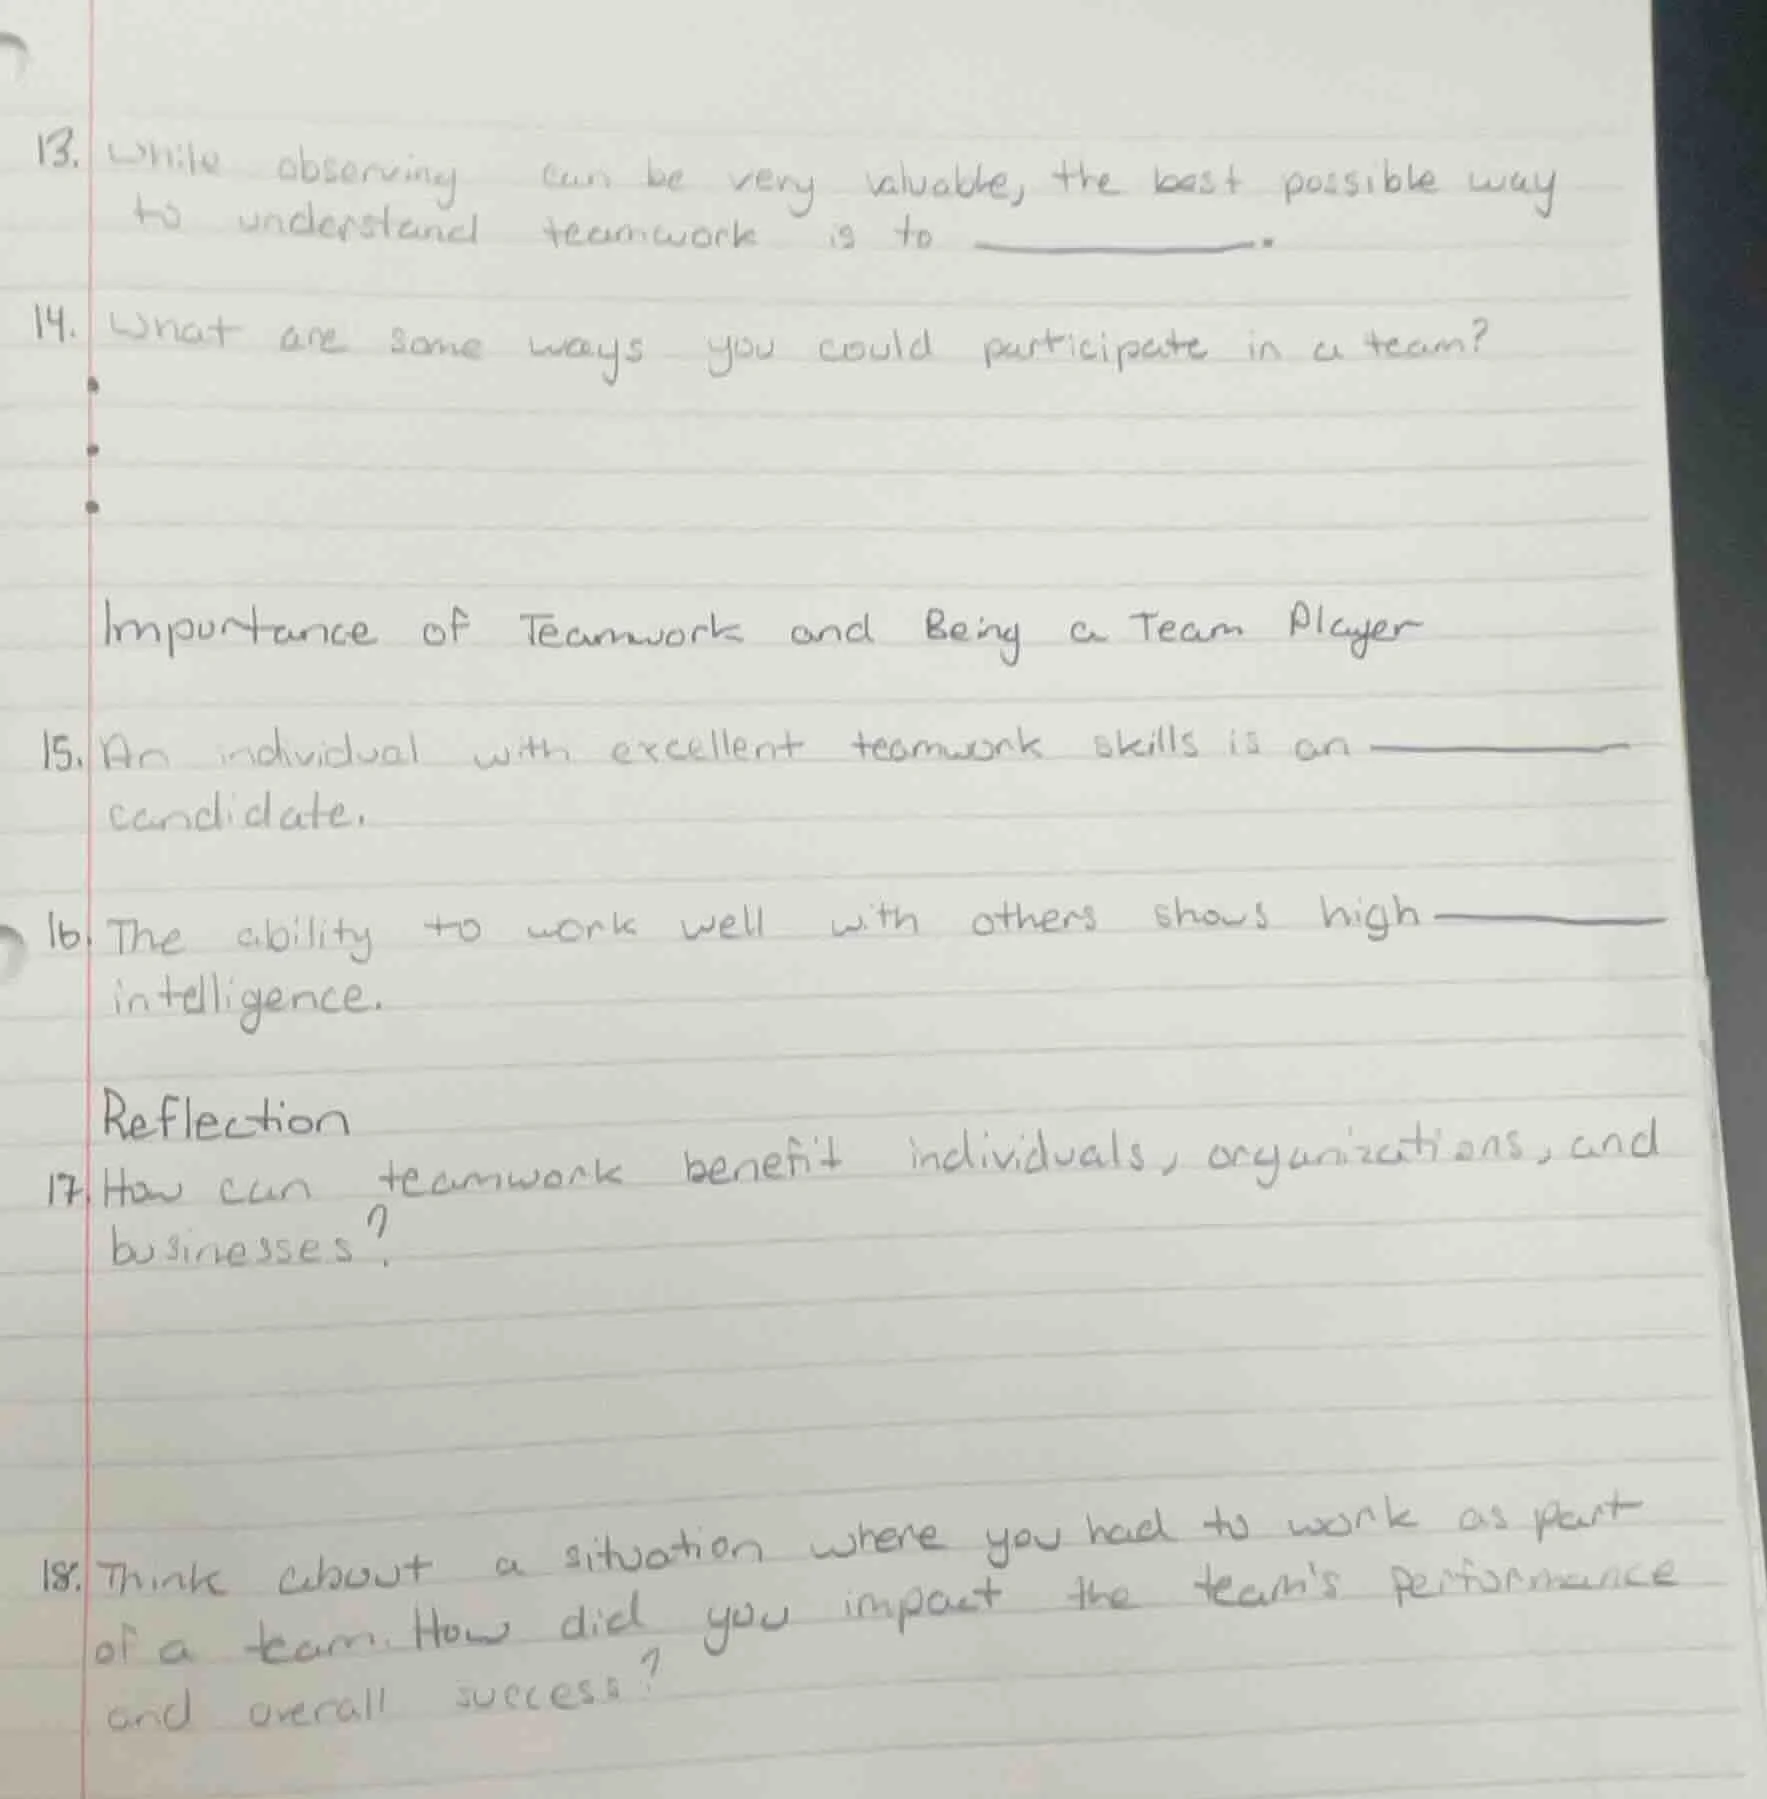 13. While observing can be very valuable, the best possible way
to understand teamwork is to ________.
14. What are some ways you could participate in a team?
•
•
•
Importance of Teamwork and Being a Team Player
15. An individual with excellent teamwork skills is an ________
candidate.
16. The ability to work well with others shows high ________
intelligence.
Reflection
17. How can teamwork benefit individuals, organizations, and
businesses?
18. Think about a situation where you had to work as part
of a team. How did you impact the team's performance
and overall success?